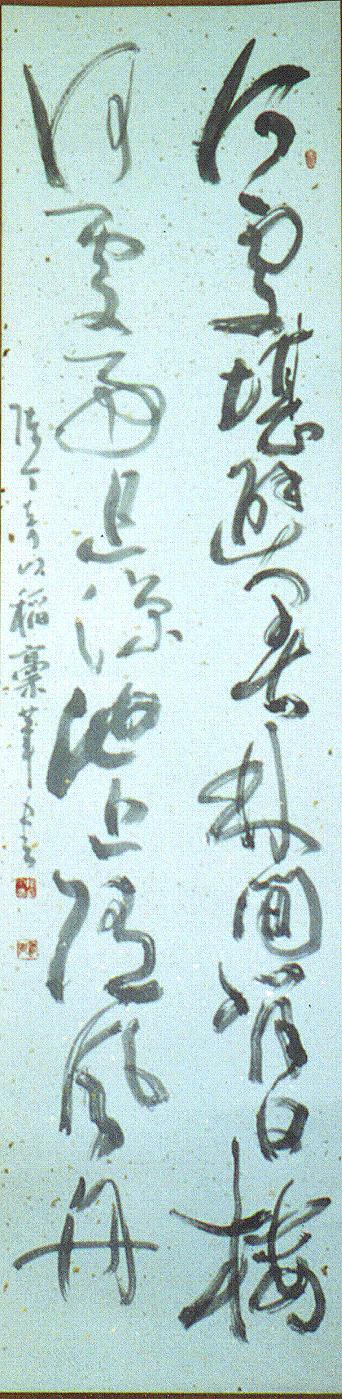 何處堪避暑林間背日樓
何處好追涼池上隨風舟
以稻稾筆